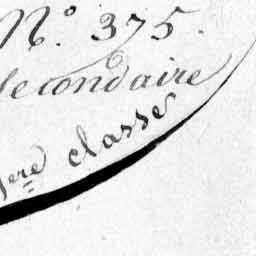 N.° 375.
Secondaire
1ere classe